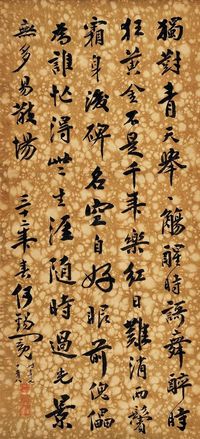 獨對青天舉一觴醒時謌舞醉時
狂黃金不是千年業紅日難消兩鬢
霜身後碑名空自好眼前傀儡
為誰忙得些生涯隨時過光景
無多易散場 三十三年春